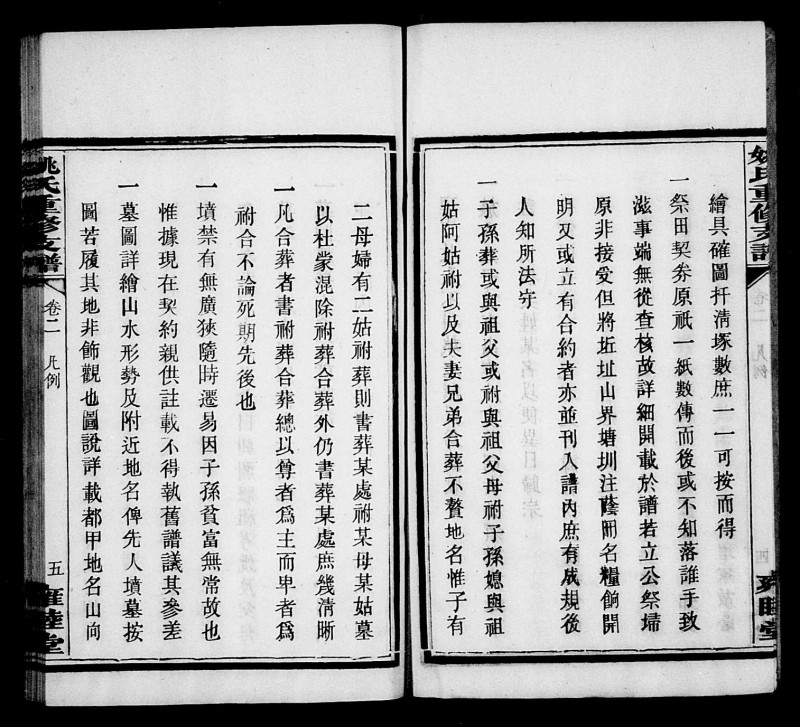 姚氏重修支譜
卷二 凡例
四
雍睦堂
繪具確圖扞清塚數庶一一可按而得
一祭田契券原祇一紙數傳而後或不知落誰手致
滋事端無從查核故詳細開載於譜若立公祭墆
原非接受但將坵址山界塘圳注蔭冊名糧餉開
明又或立有合約者亦並刊入譜內庶有成規後
人知所法守
一子孫葬或與祖父或祔與祖父母祔子孫媳與祖
姑阿姑祔以及夫妻兄弟合葬不贅地名惟子有
二母婦有二姑祔葬則書葬某處祔某母某姑墓
以杜蒙混除祔葬合葬外仍書葬某處庶幾清晰
一凡合葬者書祔葬合葬總以尊者爲主而卑者爲
祔合不論死期先後也
一墳禁有無廣狹隨時遷易因子孫貧富無常故也
惟據現在契約親供註載不得執舊譜議其參差
一墓圖詳繪山水形勢及附近地名俾先人墳墓按
圖若履其地非飾觀也圖說詳載都甲地名山向
姚氏重修支譜
卷二 凡例
五
雍睦堂